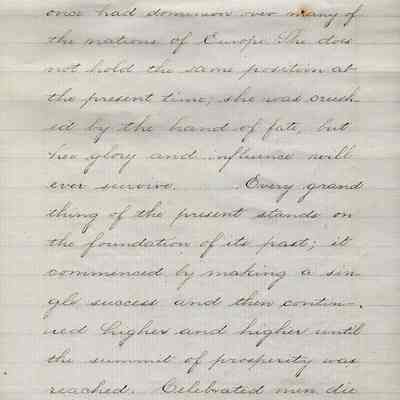 once had dominion over many of
the nations of Europe. She does
not hold the same position at
the present time; she was crush-
ed by the hand of fate, but
her glory and influence will
ever survive. Every grand
thing of the present stands on
the foundation of its past; it
commenced by making a sin-
gle success and then contin-
ued higher and higher until
the summit of prosperity was
reached. Celebrated men die